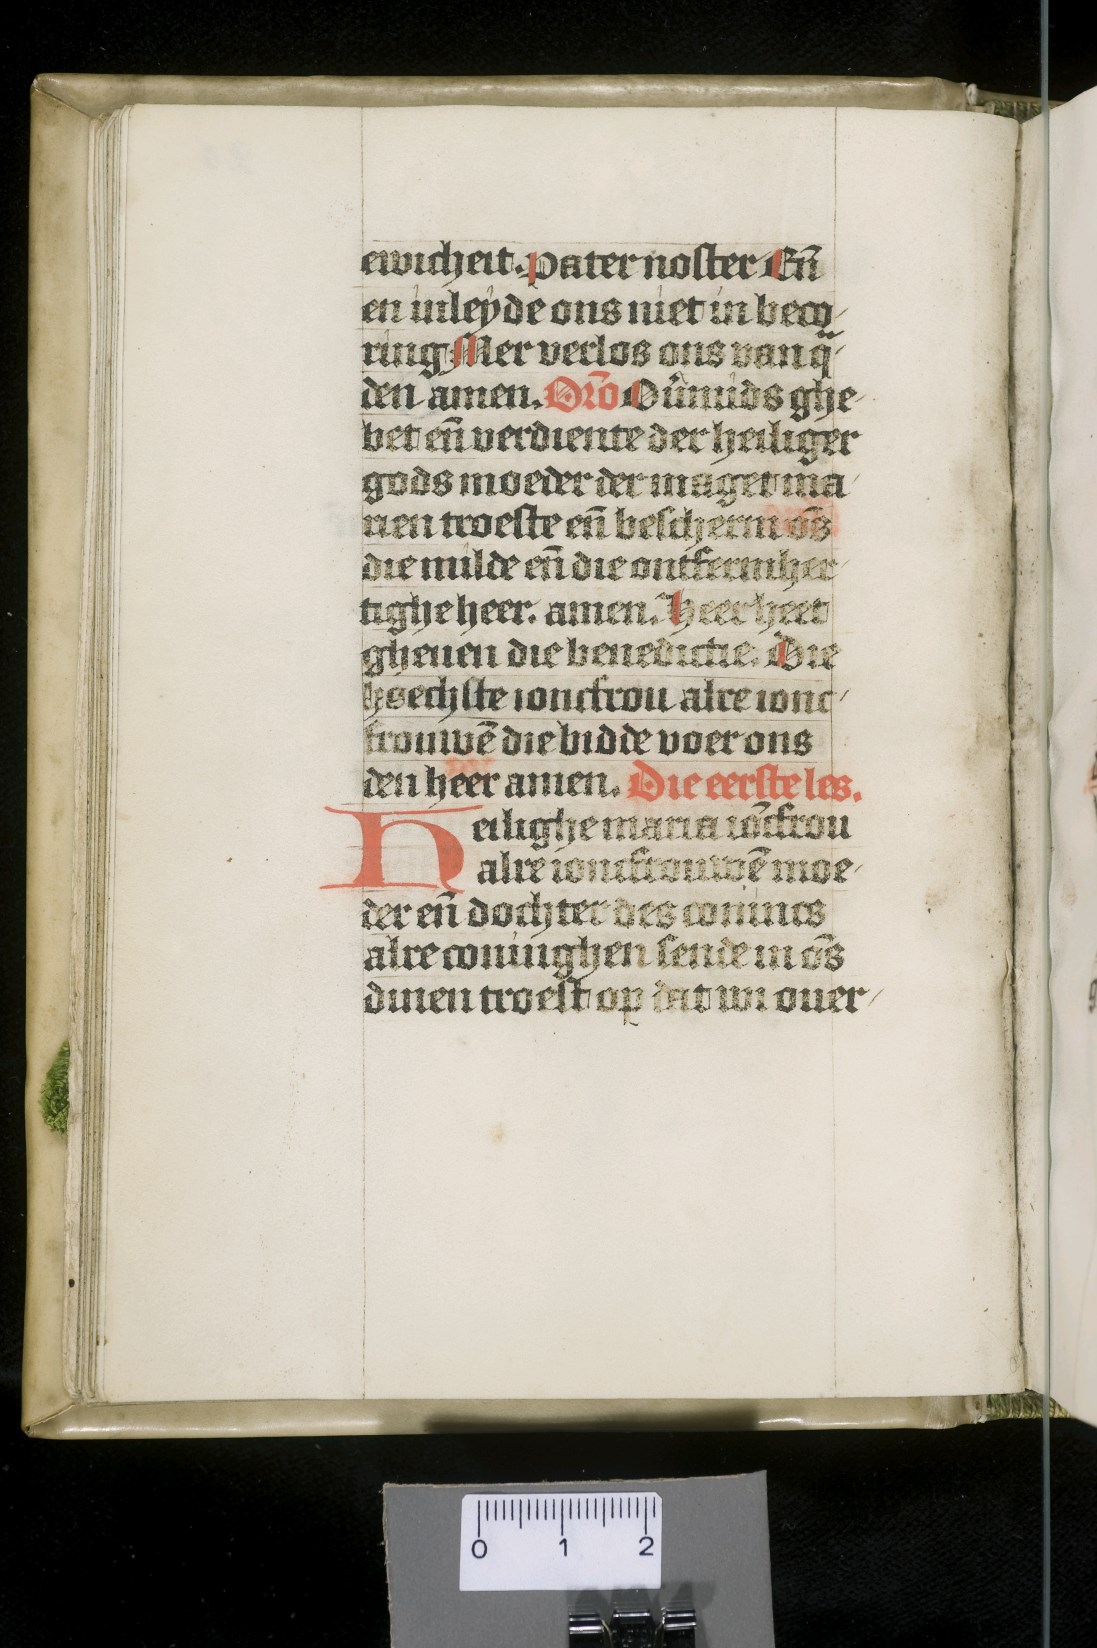 ewicheit. Pater noster Eñ
en inleyde ons niet in beco⸗
ring Mer verlos ons van q̃⸗
den amen. Oro͂ Oūmids ghe⸗
bet eñ verdiente der heiliger
gods moeder der maget ma⸗
rien troeste eñ bescherm o͂s
die milde eñ die ontfermher⸗
tighe heer. amen. Heer heet
gheuen die benedictie. Die
hoechste ioncfrou alre ionc⸗
frouwē die bidde voer ons
den heer amen. Die eerste les.
Heilighe maria io͂cfrou
alre ioncfrouwē moe⸗
der eñ dochter des conincs
alre coninghen sende in o͂s
dinen troest op dat wi ouer⸗
0 1 2